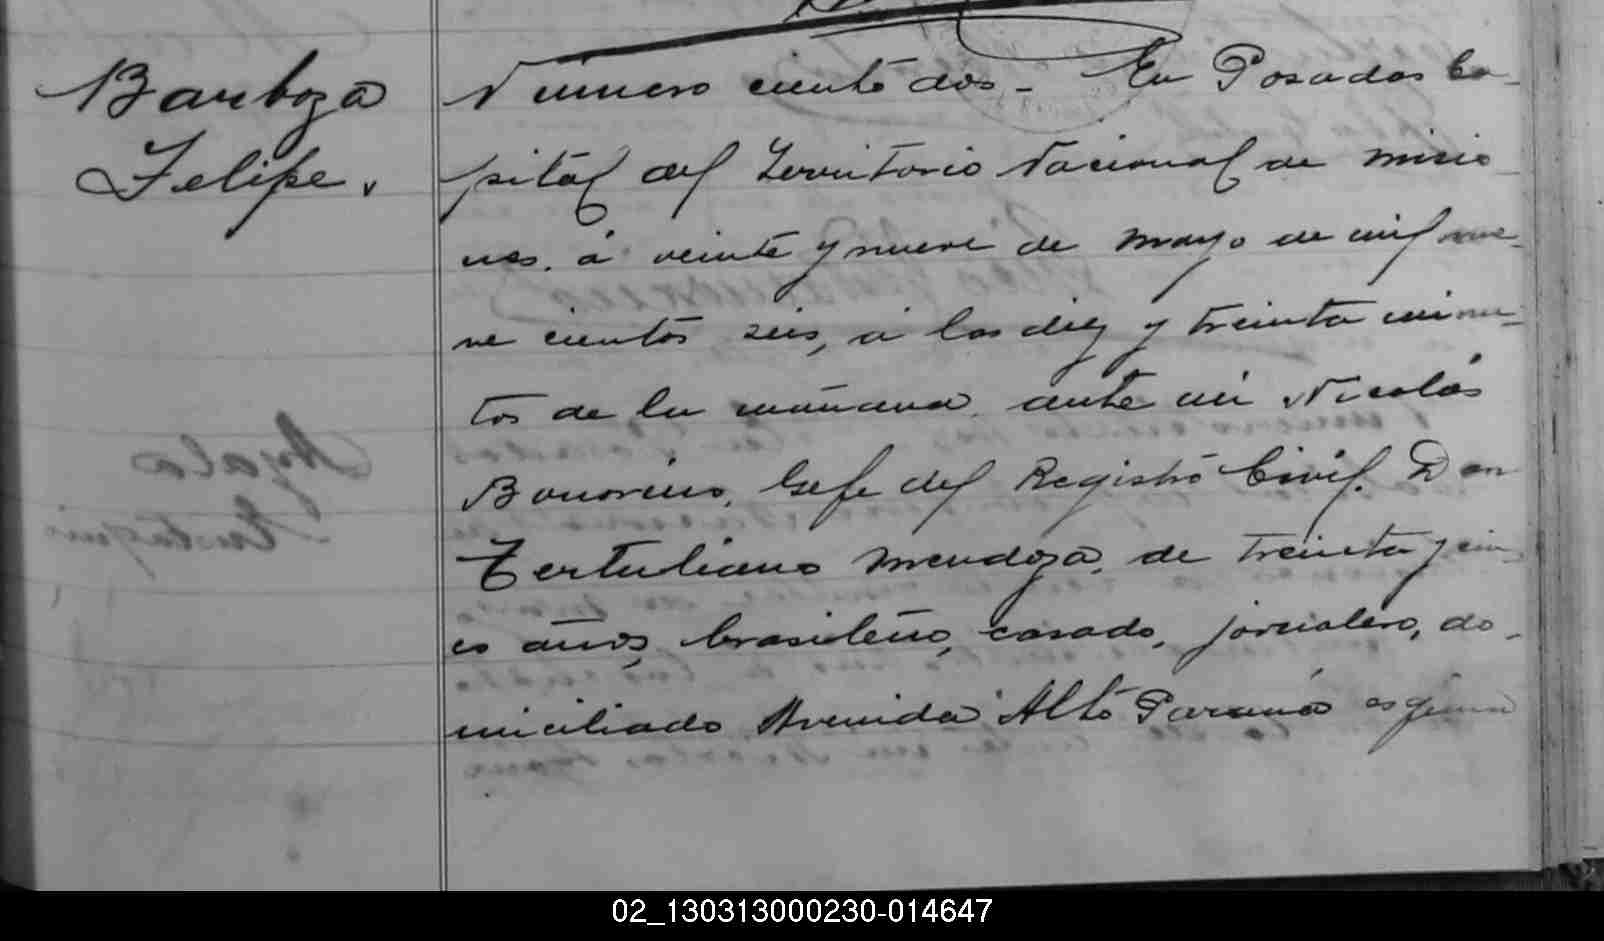 Barboza
Felipe.
Número ciento dos - En Posadas Ca-
pital del Territorio Nacional de Misio-
nes. á veinte y nueve de Mayo de mil nue-
ve cientos seis, á las diez y treinta minu-
tos de la mañana, ante mi Nicolás
Bonorino, Gefe del Registro Civil. Don
Tertuliano Mendoza, de treinta y cin-
co años, brasileño, casado, jornalero, do-
miciliado Avenida Alto Paraná esquina
02_130313000230-014647